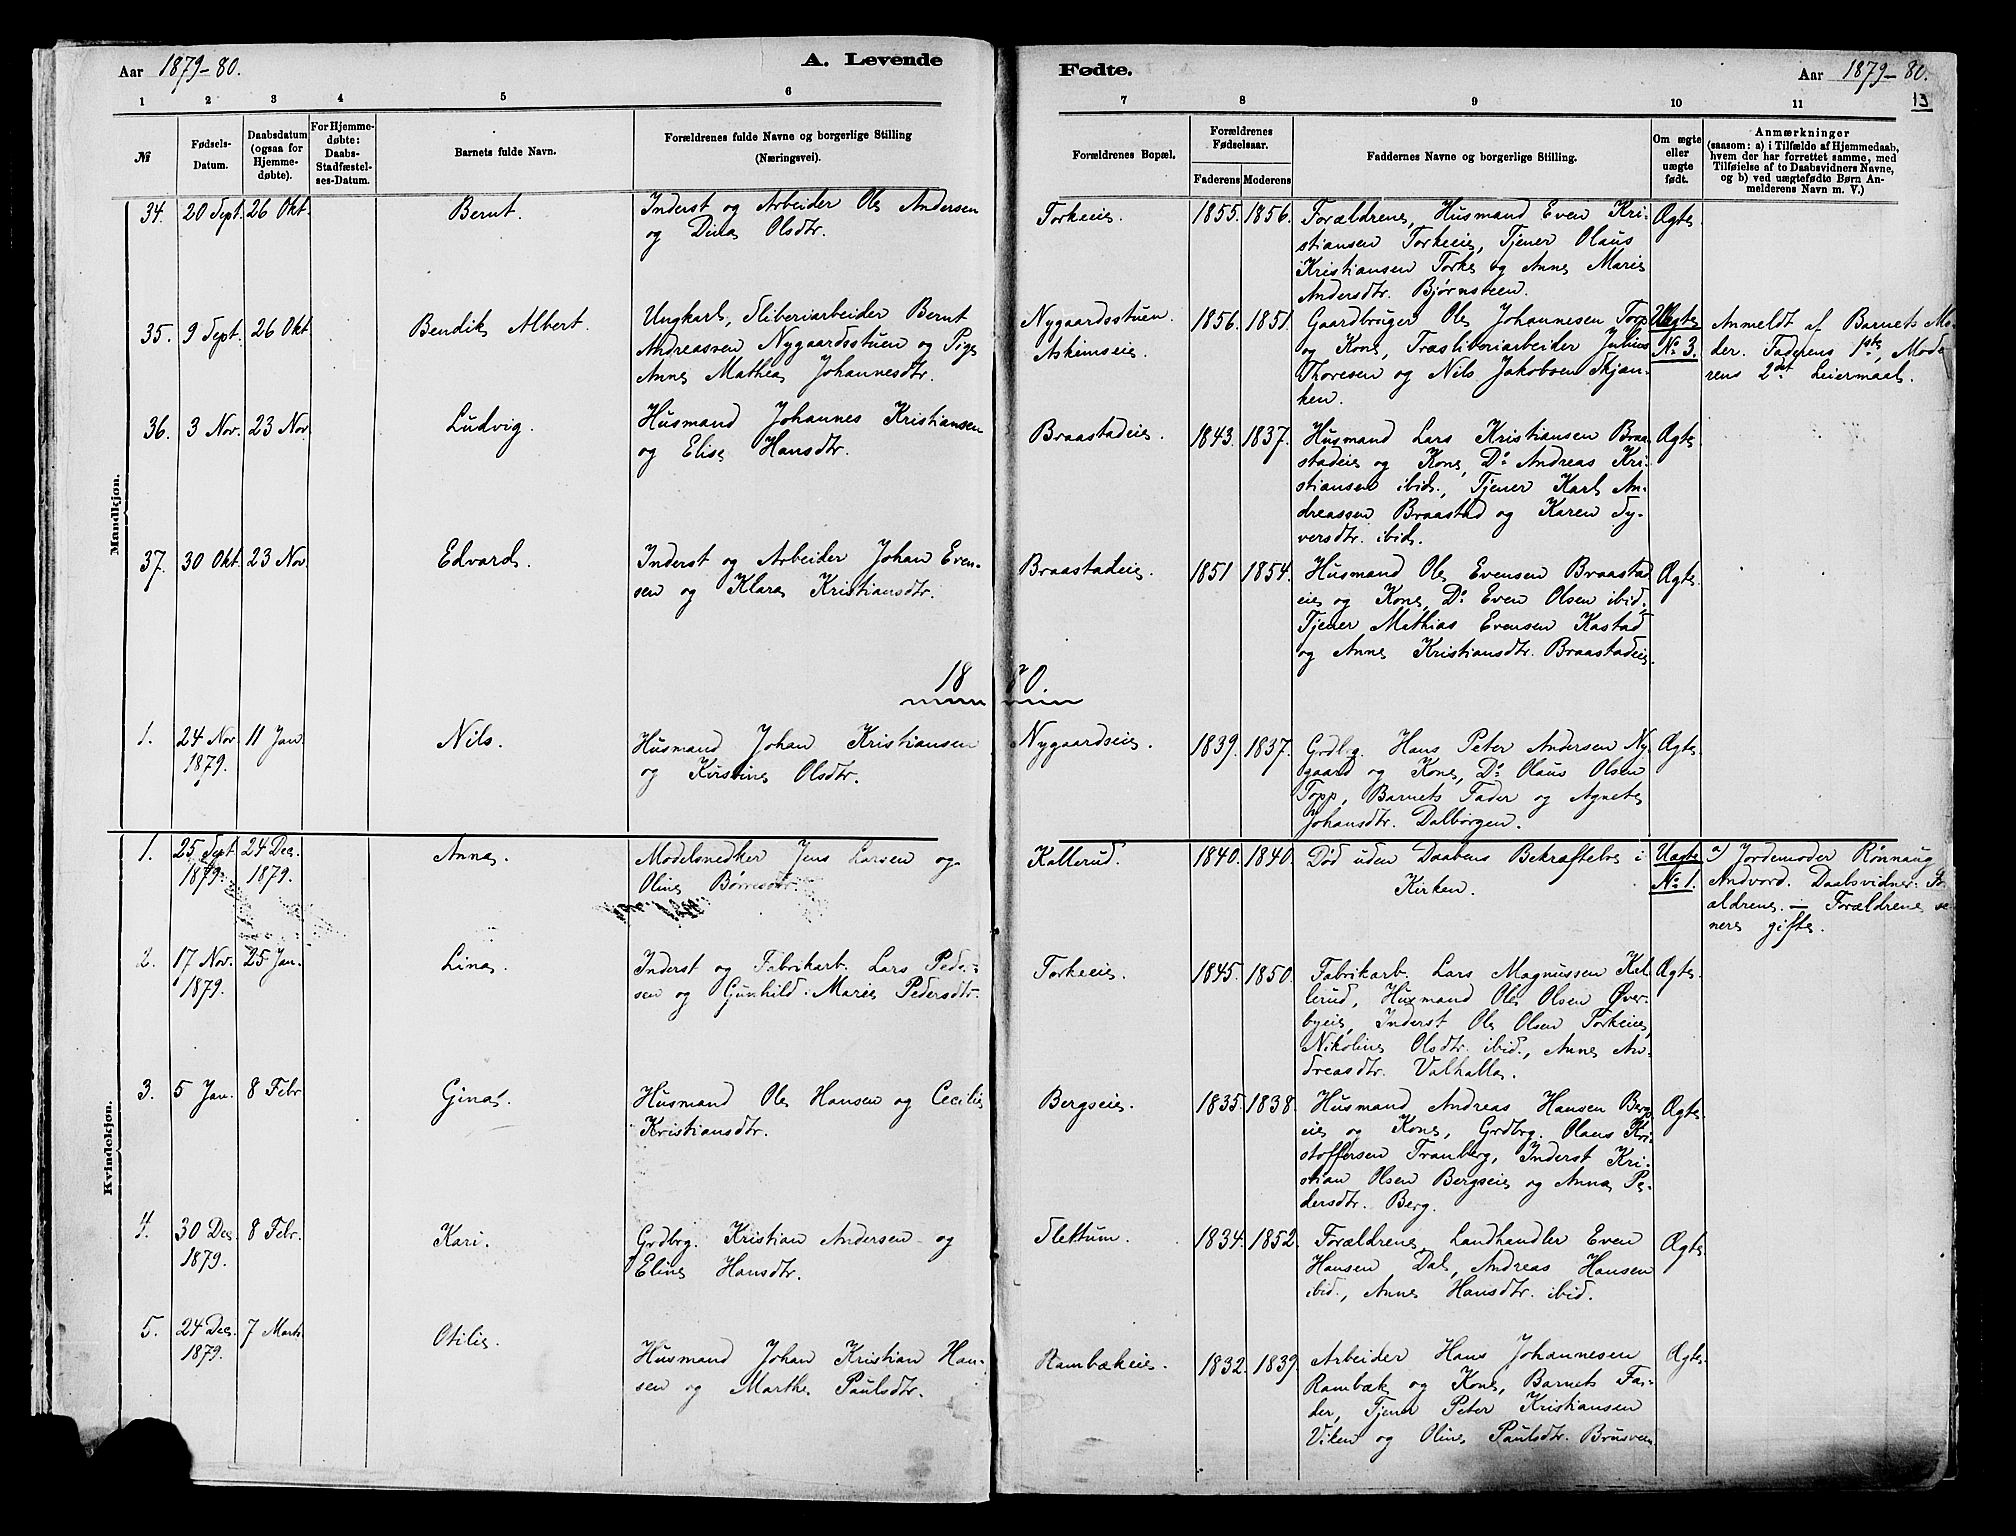 Aar 1879-80.
A. Levende
Fødte.
Aar 1879-80.
13
1 2 3 4 5 6 7 8 9 10 11
№
Fødsels-
Datum.
Daabsdatum
(ogsaa for
Hjemme-
døbte).
For Hjemme-
døbte:
Daabs-
Stadfæstel-
ses-Datum.
Barnets fulde Navn.
Forældrenes fulde Navne og borgerlige Stilling
(Næringsvei).
Forældrenes Bopæl.
Forældrenes
Fødselsaar.
Faderens Moderens
Faddernes Navne og borgerlige Stilling.
Om ægte
eller
uægte
født.
Anmærkninger
(saasom: a) i Tilfælde af Hjemmedaab,
hvem der har forrettet samme, med
Tilføielse af to Daabsvidners Navne,
og b) ved uægtefødte Børn An-
melderens Navn m. V.)
Mandkjøn.
34. 20 Sept. 26 Okt. Bernt.
Inderst og Arbeider Ole Andersen
og Dina Olsdtr.
Torkeie. 1855. 1856.
Forældrene, Husmand Even Kri-
stiansen Torkeeie, Tjener Olaus
Kristiansen Torke og Anne Marie
Andersdtr. Bjørnsteen.
Ægte
35. 9 Sept. 26 Okt Bendik Albert.
Ungkarl, Sliberiarbeider Bernt
Andreassen Nygaardsstuen og Pige
Anne Mathea Johannesdtr.
Nygaardsstuen
Askimseie.
1856. 1851.
Gaardbruger Ole Johannesen Torp
og Kone, Træsliberiarbeider Julius
Thoresen og Nils Jakobsen Skjan-
ken.
Uægte
No 3.
Anmeldt af Barnets Mo-
der. Faderens 1ste, Mode
rens 2det Leiermaal.
36. 3 Nov. 23 Nov Ludvig.
Husmand Johannes Kristiansen
og Elise Hansdtr.
Braastadeie. 1843. 1837.
Husmand Lars Kristiansen Braa-
stadeie og Kone, Do Andreas Kri-
stiansen ibid., Tjener Karl An-
dreassen Braastad og Karen Sy-
versdtr. ibid.
Ægte
37. 30 Okt. 23 Nov. Edvard.
Inderst og Arbeider Johan Even-
sen og Klara Kristiansdtr.
Braastadeie. 1851 1854.
Husmand Ole Evensen Braastad
eie og Kone, Do Even Olsen ibid,
Tjener Mathias Evensen Kastad
og Anne Kristiansdtr. Braastadeie.
Ægte.
1880.
1. 24 Nov
1879. 11 Jan. Nils.
Husmand Johan Kristiansen
og Kirstine Olsdtr.
Nygaardseie. 1839. 1837.
Grdbrg. Hans Peter Andersen Ny-
gaard og Kone, Do Olaus Olsen
Topp, Barnets Fader og Agnete
Johansdtr. Dalborgen.
Ægte.
Kvindekjøn.
1. 25 Sept
1879. 24 Dec.
1879. Anna.
Modelsnedker Jens Larsen og
Oline Børresdtr.
Kallerud. 1840. 1840.
Død uden Daabens Bekræftelse i
Kirken.
Uægte
No 1.
a) Jordemoder Rönnaug
Andvord. Daabsvidner: Fo
rældrene. — Forældrene se
nere gifte.
2. 17 Nov.
1879. 25 Jan. Lina.
Inderst og Fabrikarb. Lars Peder-
sen og Gunhild Marie Pedersdtr.
Torkeeie. 1845. 1850.
Fabrikarb. Lars Magnussen Kal
lerud, Husmand Ole Olsen Øver-
byeie, Inderst Ole Olsen Torkeeie,
Nikoline Olsdtr. ibid., Anne An-
dreasdtr. Valhalla.
Ægte.
3. 5 Jan. 8 Febr Gina.
Husmand Ole Hansen og Cecilie
Kristiansdtr.
Bergseie. 1835. 1838.
Husmand Andreas Hansen Bergs
eie og Kone, Grdbrg. Olaus Kri-
stoffersen Tranberg, Inderst Kri-
stian Olsen Bergseie og Anna Pe-
dersdtr. Berg.
Ægte
4. 30 Dec.
1879. 8 Febr. Kari.
Grdbrg. Kristian Andersen og
Eline Hansdtr.
Slettum. 1834. 1852.
Forældrene, Landhandler Even
Hansen Dal, Andreas Hansen
ibid., Anne Hansdtr. ibid.
Ægte.
5. 24 Dec.
1879. 7 Marts. Otilie.
Husmand Johan Kristian Han-
sen og Marthe Paulsdtr.
Rambækeie. 1832. 1839.
Arbeider Hans Johannesen
Rambæk og Kone, Barnets Fa-
der, Tjener Peter Kristiansen
Viken og Oline Paulsdtr. Brusveen.
Ægte.